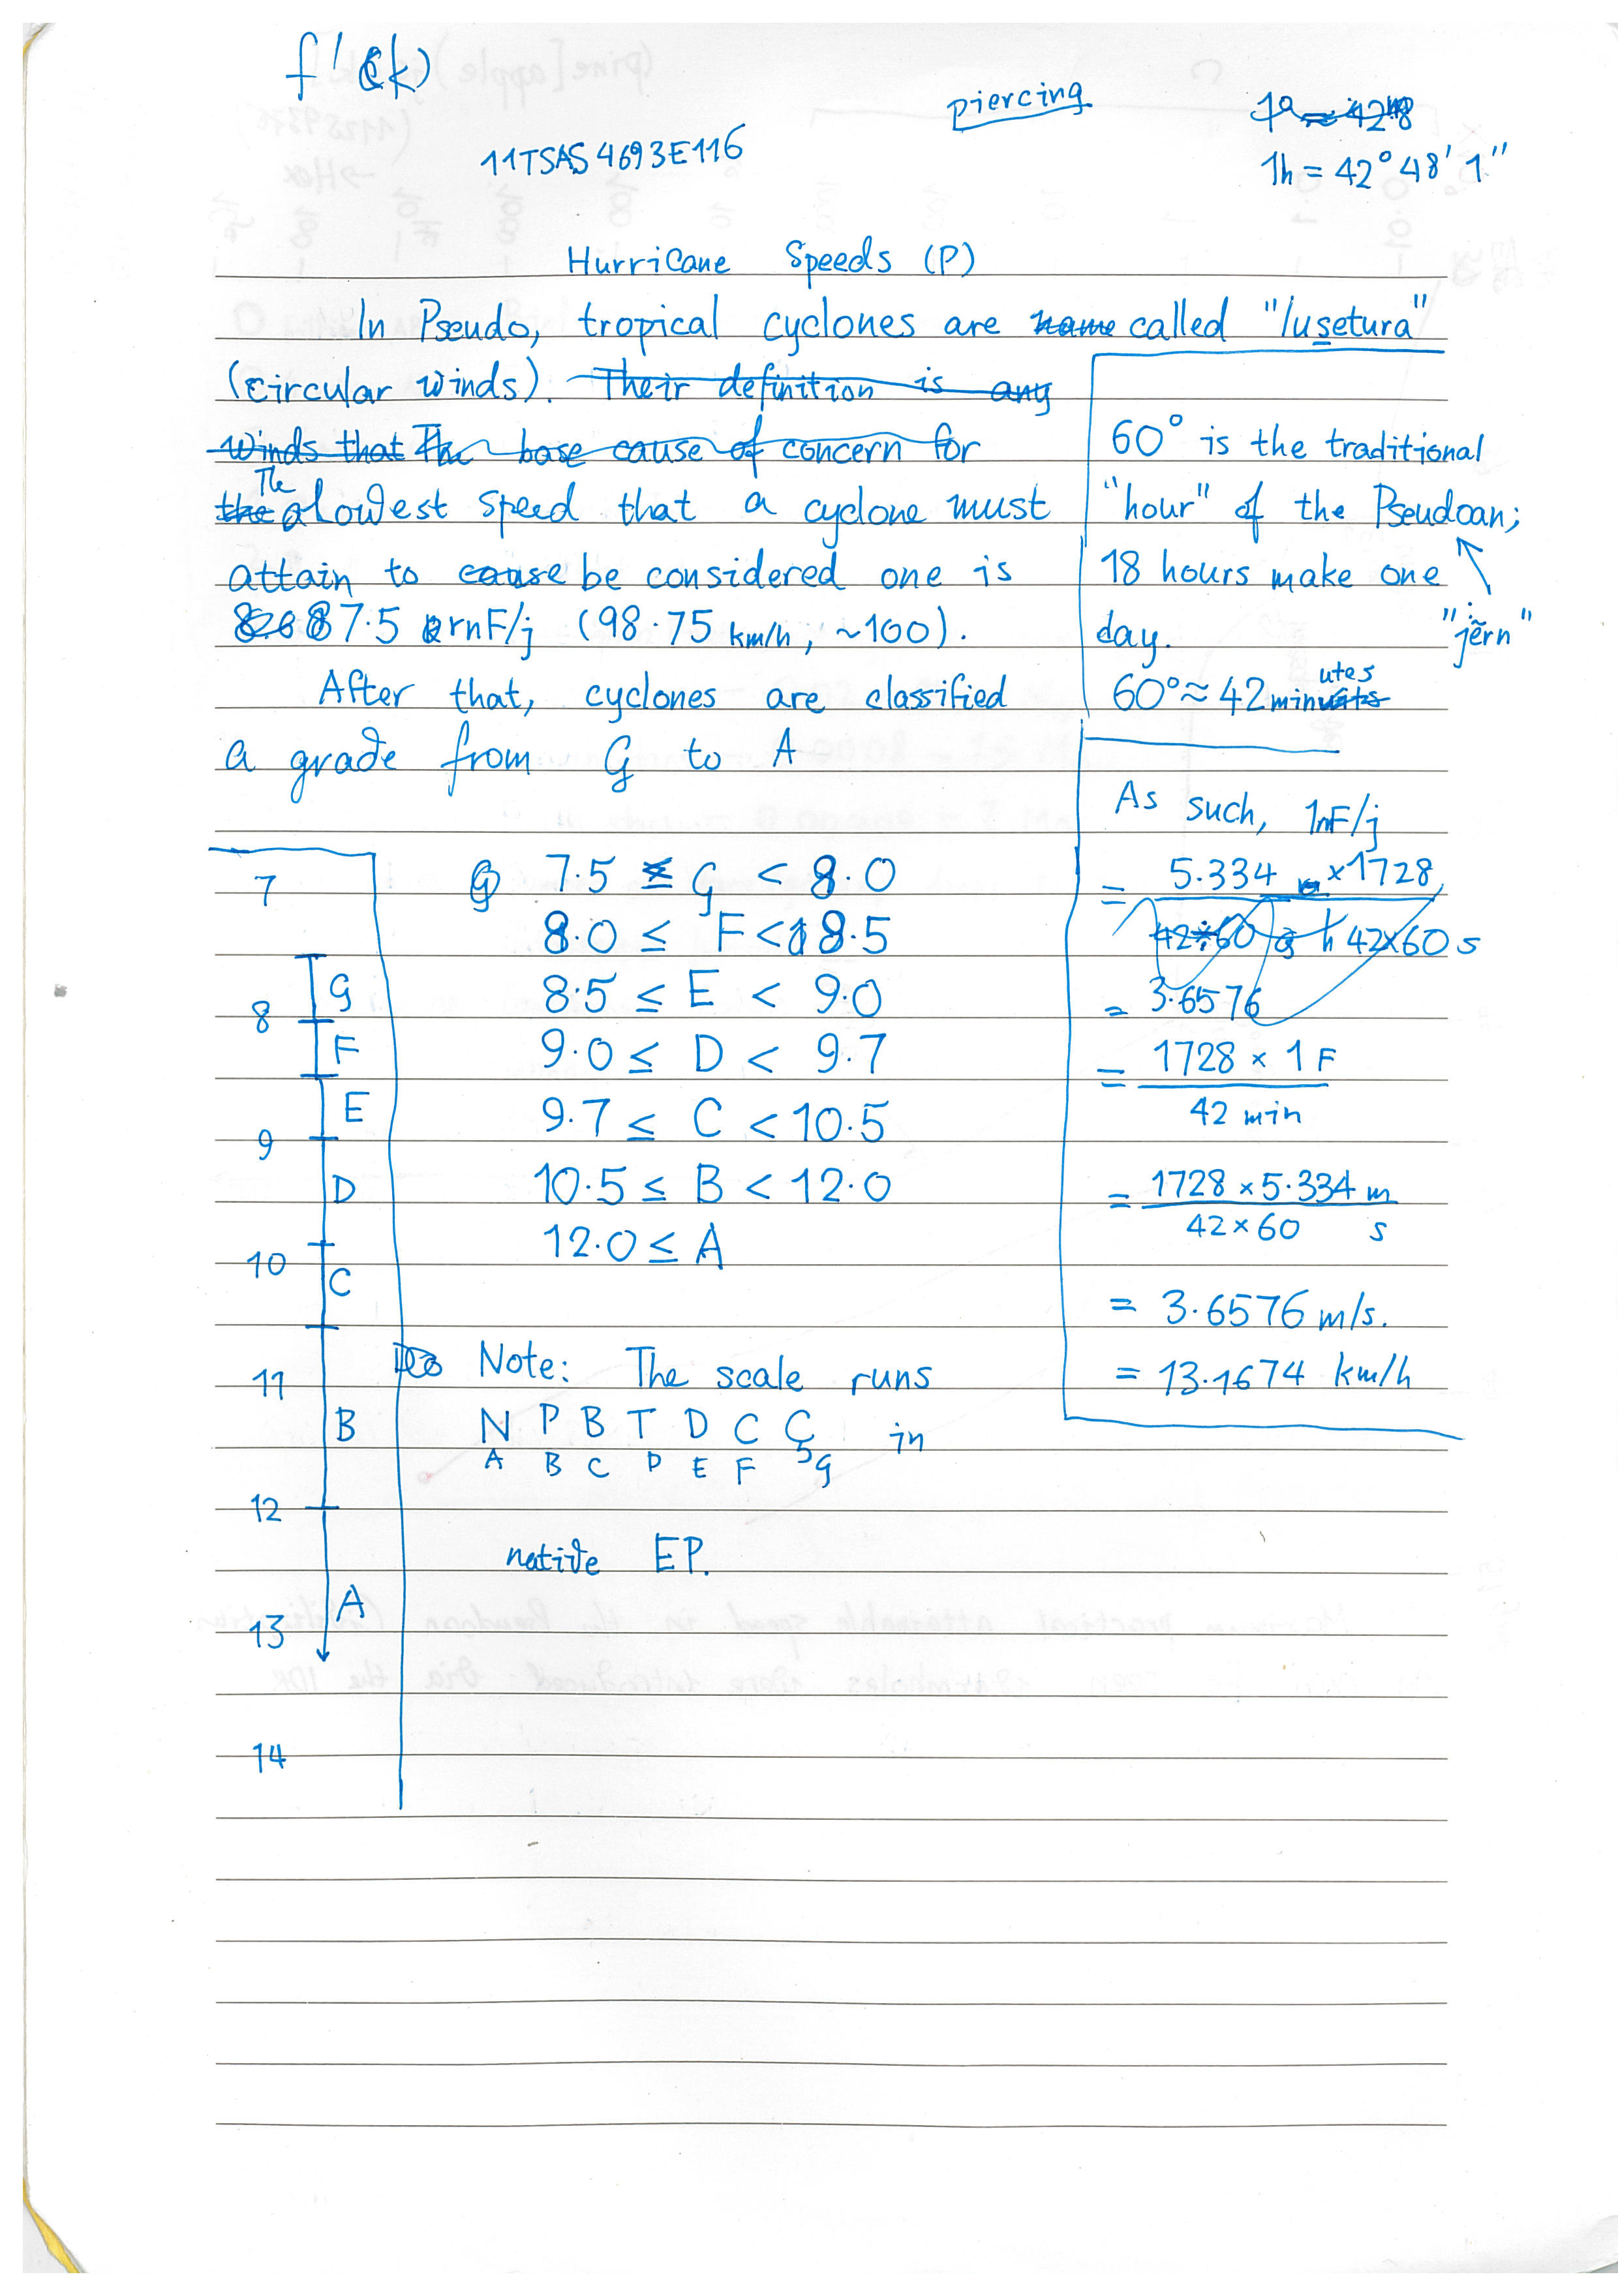 f'(k)
piercing
11TSAS4693E116
1h = 42° 48' 1"
Hurricane Speeds (P)
In Pseudo, tropical cyclones are name called "lusetura"
(circular winds). Their definition is any
winds that The base cause of concern for
the The lowest speed that a cyclone must
attain to cause be considered one is
7.5 rnF/j (98.75 km/h, ~100).
After that, cyclones are classified
a grade from G to A
60° is the traditional
"hour" of the Pseudoan;
18 hours make one
day. "jërn"
60° ≈ 42 minutes
As such, 1nF/j
= 5.334 m × 1728
42 × 60 s
= 3.6576
= 1728 × 1 F
42 min
= 1728 × 5.334 m
42 × 60 s
= 3.6576 m/s.
= 13.1674 km/h
7
8
9
10
11
12
13
14
G
F
E
D
C
B
A
7.5 ≤ G < 8.0
8.0 ≤ F < 8.5
8.5 ≤ E < 9.0
9.0 ≤ D < 9.7
9.7 ≤ C < 10.5
10.5 ≤ B < 12.0
12.0 ≤ A
Note: The scale runs
N P B T D C Ç in
A B C D E F G
native EP.